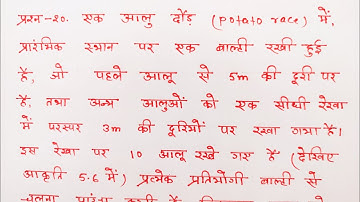 प्रश्न-20. एक आलू दौड़ (potato race) में,
प्रारंभिक स्थान पर एक बाल्टी रखी हुई
है, जो पहले आलू से 5m की दूरी पर
है, तथा अन्य आलुओं को एक सीधी रेखा
में परस्पर 3m की दूरियों पर रखा गया है।
इस रेखा पर 10 आलू रखे गए हैं (देखिए
आकृति 5.6 में) प्रत्येक प्रतियोगी बाल्टी से
चलना